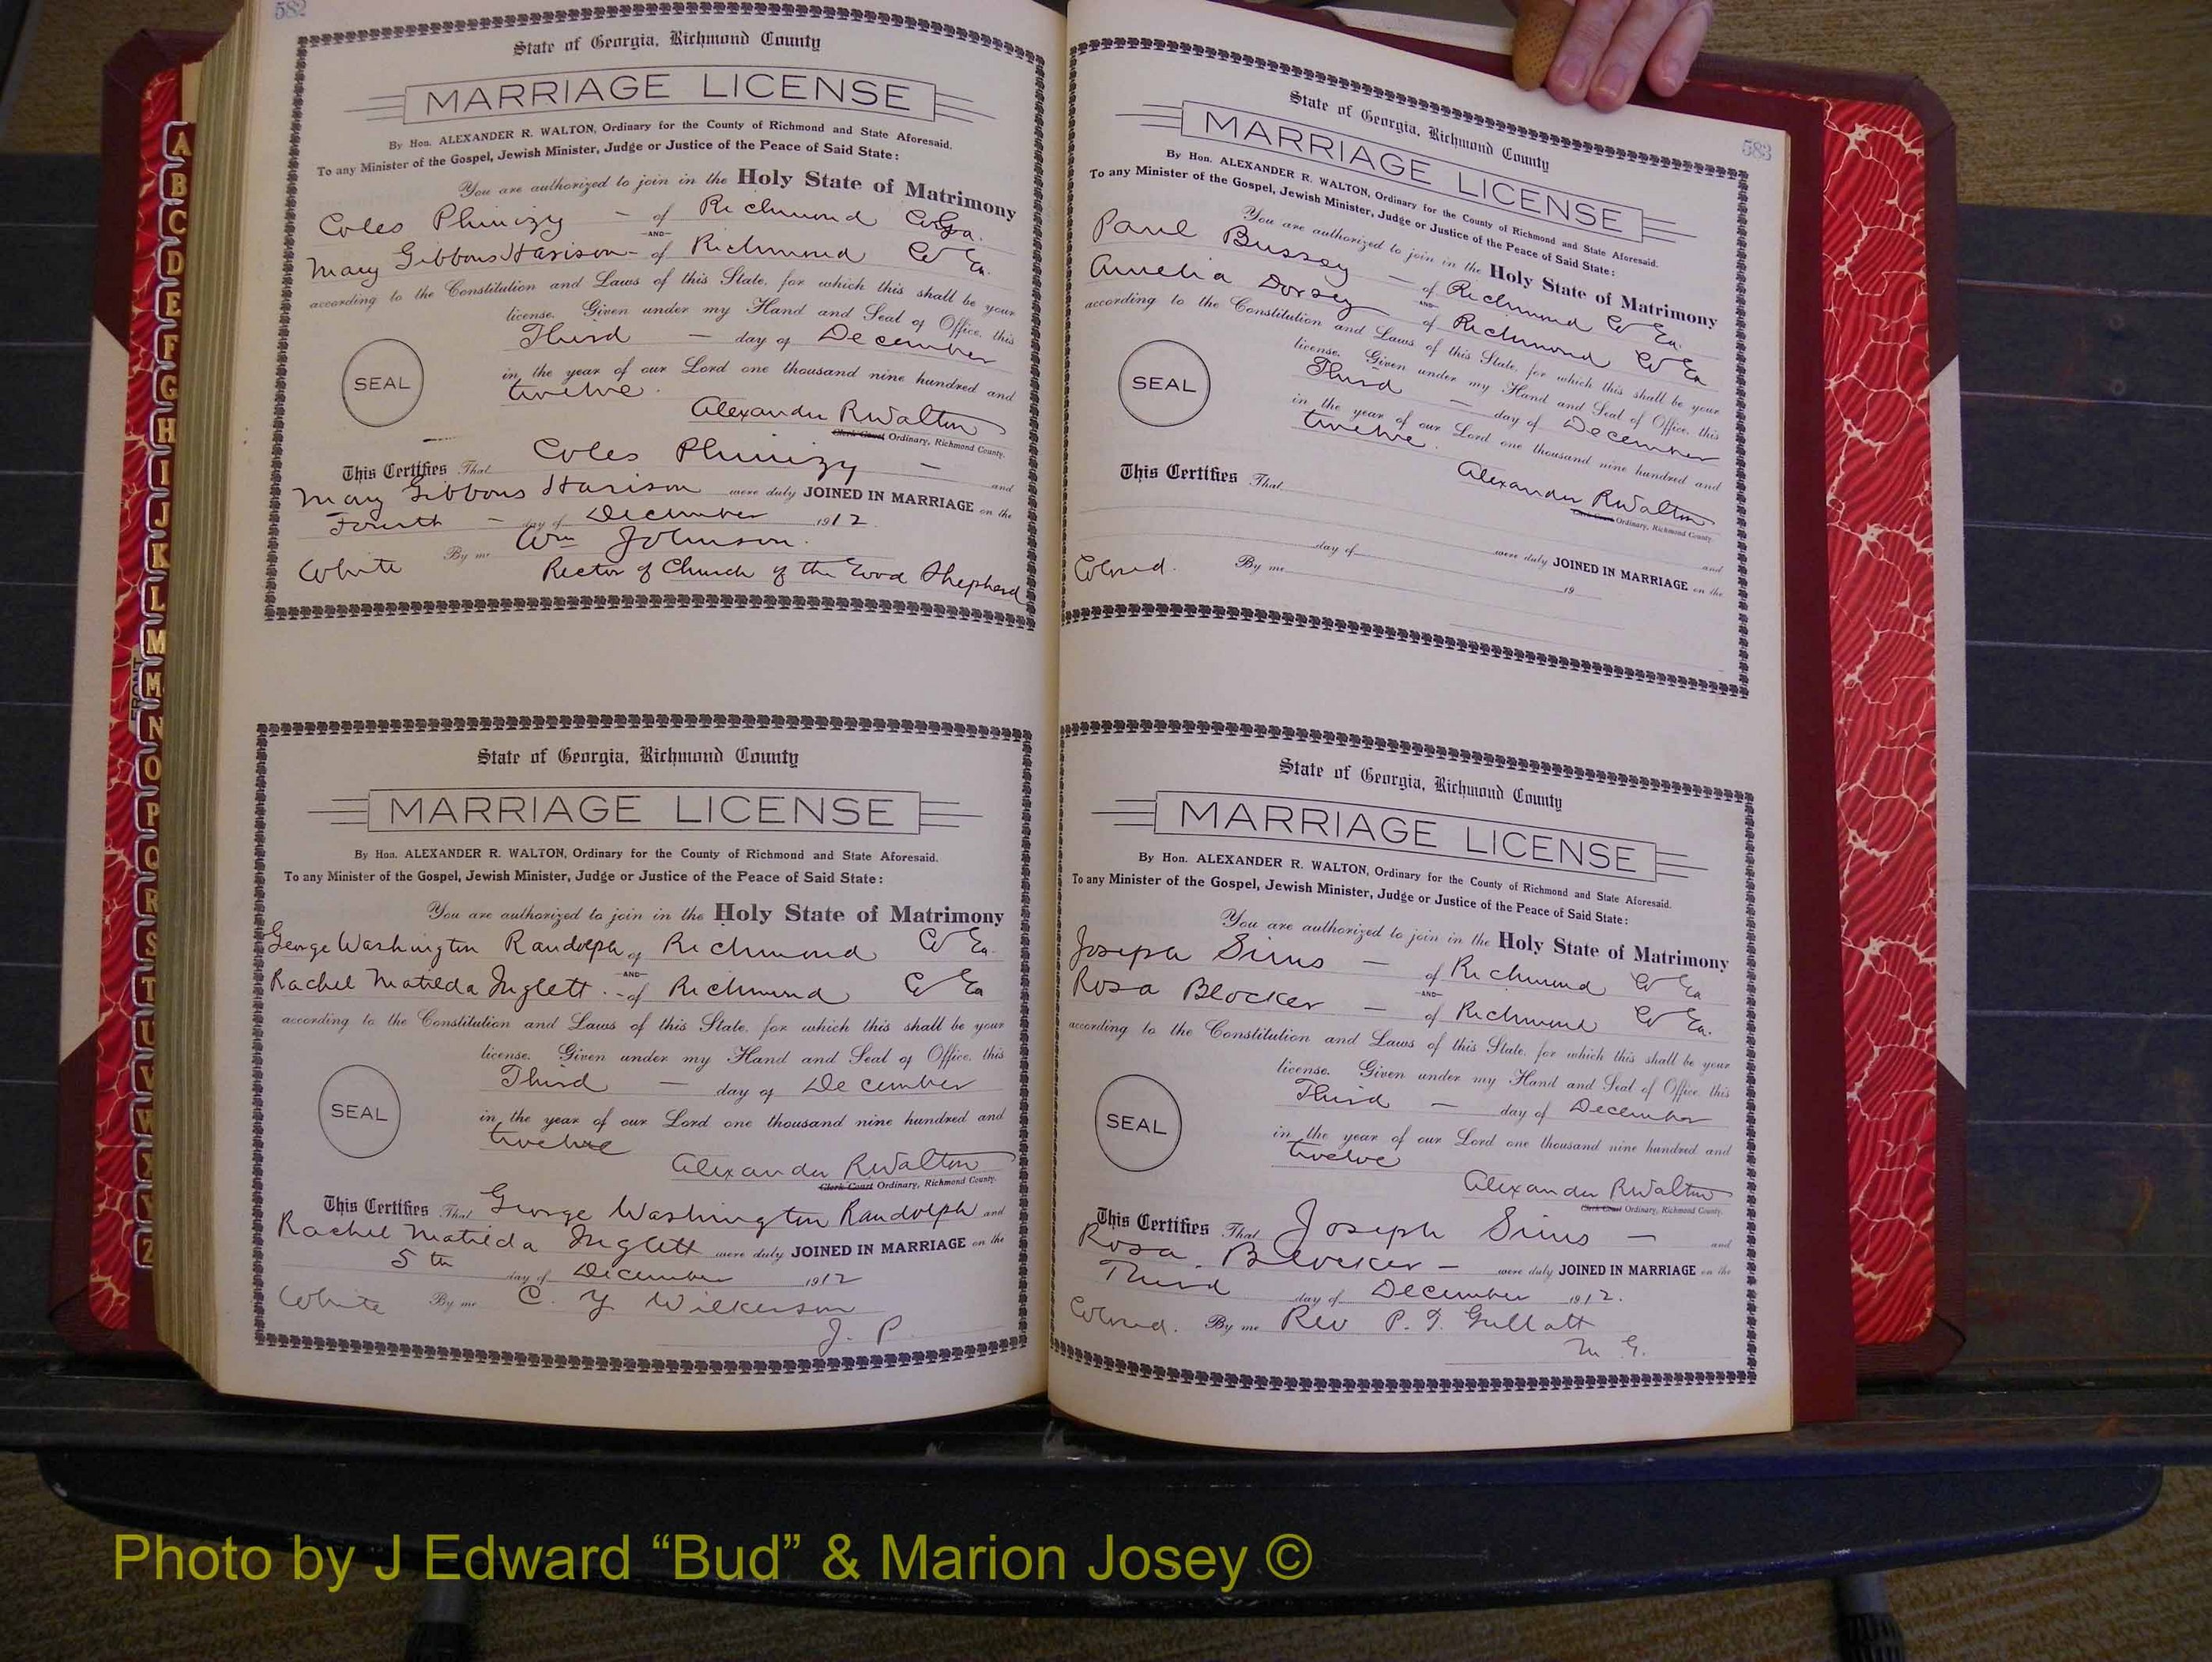 582
State of Georgia, Richmond County
MARRIAGE LICENSE
By Hon. ALEXANDER R. WALTON, Ordinary for the County of Richmond and State Aforesaid.
To any Minister of the Gospel, Jewish Minister, Judge or Justice of the Peace of Said State:
You are authorized to join in the Holy State of Matrimony
Coles Phinizy – of Richmond Co Ga.
—AND—
Mary Gibbons Harison – of Richmond Co Ga.
according to the Constitution and Laws of this State, for which this shall be your
license. Given under my Hand and Seal of Office, this
Third – day of December
in the year of our Lord one thousand nine hundred and
twelve.
SEAL
Alexander R Walton
Clerk Court Ordinary, Richmond County.
This Certifies That Coles Phinizy – and
Mary Gibbons Harison were duly JOINED IN MARRIAGE on the
Fourth – day of December 1912.
White By me Wm Johnson.
Rector of Church of the Good Shepherd
State of Georgia, Richmond County
MARRIAGE LICENSE
By Hon. ALEXANDER R. WALTON, Ordinary for the County of Richmond and State Aforesaid.
To any Minister of the Gospel, Jewish Minister, Judge or Justice of the Peace of Said State:
You are authorized to join in the Holy State of Matrimony
George Washington Randolph of Richmond Co Ga.
—AND—
Rachel Matilda Inglett. – of Richmond Co Ga
according to the Constitution and Laws of this State, for which this shall be your
license. Given under my Hand and Seal of Office, this
Third – day of December
in the year of our Lord one thousand nine hundred and
twelve
SEAL
Alexander R Walton
Clerk Court Ordinary, Richmond County.
This Certifies That George Washington Randolph and
Rachel Matilda Inglett were duly JOINED IN MARRIAGE on the
5th day of December 1912
White By me C. Y Wilkerson
J. P.
583
State of Georgia, Richmond County
MARRIAGE LICENSE
By Hon. ALEXANDER R. WALTON, Ordinary for the County of Richmond and State Aforesaid.
To any Minister of the Gospel, Jewish Minister, Judge or Justice of the Peace of Said State:
You are authorized to join in the Holy State of Matrimony
Paul Bussey – of Richmond Co Ga.
—AND—
Amelia Dorsey – of Richmond Co Ga
according to the Constitution and Laws of this State, for which this shall be your
license. Given under my Hand and Seal of Office, this
Third – day of December
in the year of our Lord one thousand nine hundred and
twelve.
SEAL
Alexander R Walton
Clerk Court Ordinary, Richmond County.
This Certifies That and
were duly JOINED IN MARRIAGE on the
day of 19
Colored. By me
State of Georgia, Richmond County
MARRIAGE LICENSE
By Hon. ALEXANDER R. WALTON, Ordinary for the County of Richmond and State Aforesaid.
To any Minister of the Gospel, Jewish Minister, Judge or Justice of the Peace of Said State:
You are authorized to join in the Holy State of Matrimony
Joseph Sims – of Richmond Co Ga
—AND—
Rosa Blocker – of Richmond Co Ga.
according to the Constitution and Laws of this State, for which this shall be your
license. Given under my Hand and Seal of Office, this
Third – day of December
in the year of our Lord one thousand nine hundred and
twelve
SEAL
Alexander R Walton
Clerk Court Ordinary, Richmond County.
This Certifies That Joseph Sims – and
Rosa Blocker – were duly JOINED IN MARRIAGE on the
Third day of December 1912.
Colored. By me Rev P.
M G.
A
B
C
D
E
F
G
H
I
J
K
L
M
M
N
O
P
Q
R
S
T
U
V
W
X
Y
Z
Photo by J Edward “Bud” & Marion Josey ©